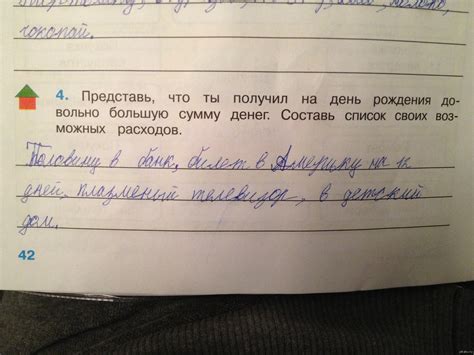 чокопай.
4. Представь, что ты получил на день рождения до-
вольно большую сумму денег. Составь список своих воз-
можных расходов.
Половину в банк, билет в Америку на 12
дней, плазменый телевизор, в детский
дом.
42